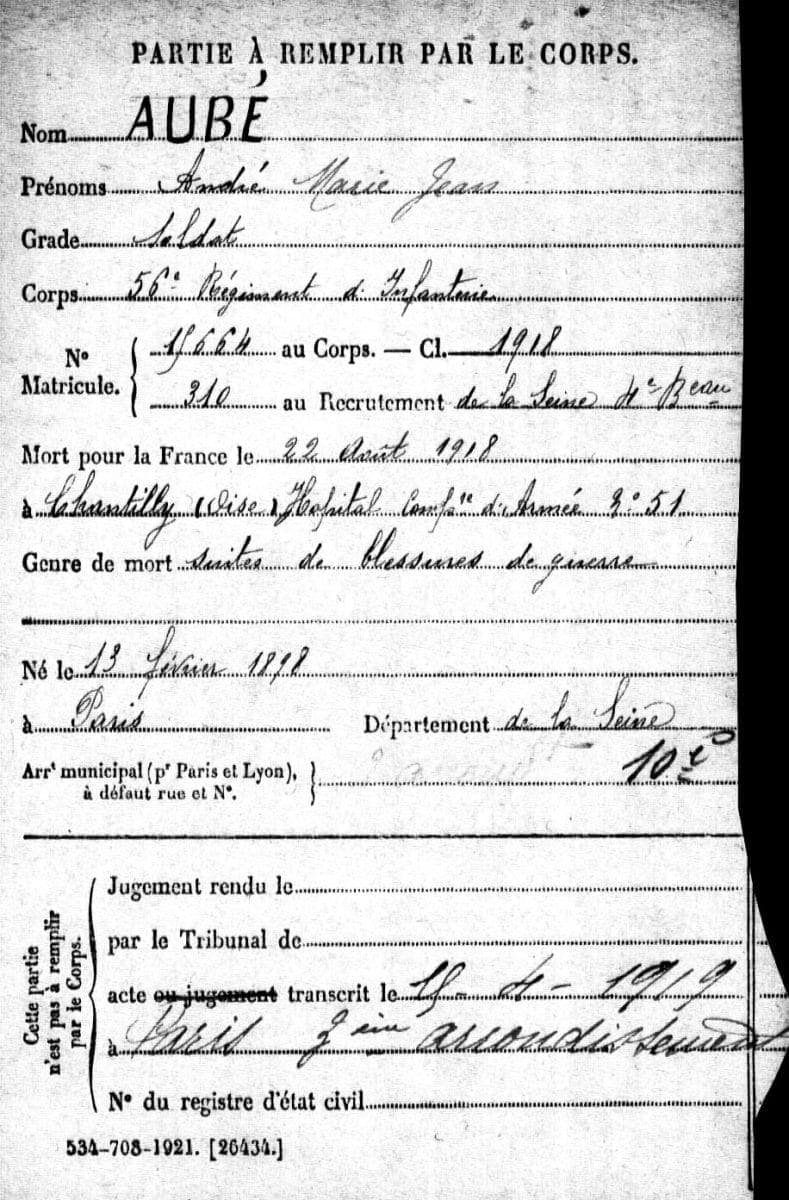 PARTIE À REMPLIR PAR LE CORPS.
Nom AUBÉ
Prénoms André Marie Jean
Grade Soldat
Corps 56e Régiment d'Infanterie
No Matricule. 15664 au Corps. — Cl. 1918
310 au Recrutement de la Seine 4e Beau
Mort pour la France le 22 Août 1918
à Chantilly (Oise) Hopital Compre d'Armée No 51
Genre de mort suites de blessures de guerre
Né le 13 février 1898
à Paris Département de la Seine
Arrt municipal (pr Paris et Lyon), à défaut rue et No. 10e
Cette partie n'est pas à remplir par le Corps.
Jugement rendu le
par le Tribunal de
acte ou jugement transcrit le 15-4-1919
à Paris arrondissement
No du registre d'état civil
534-708-1921. [26434.]